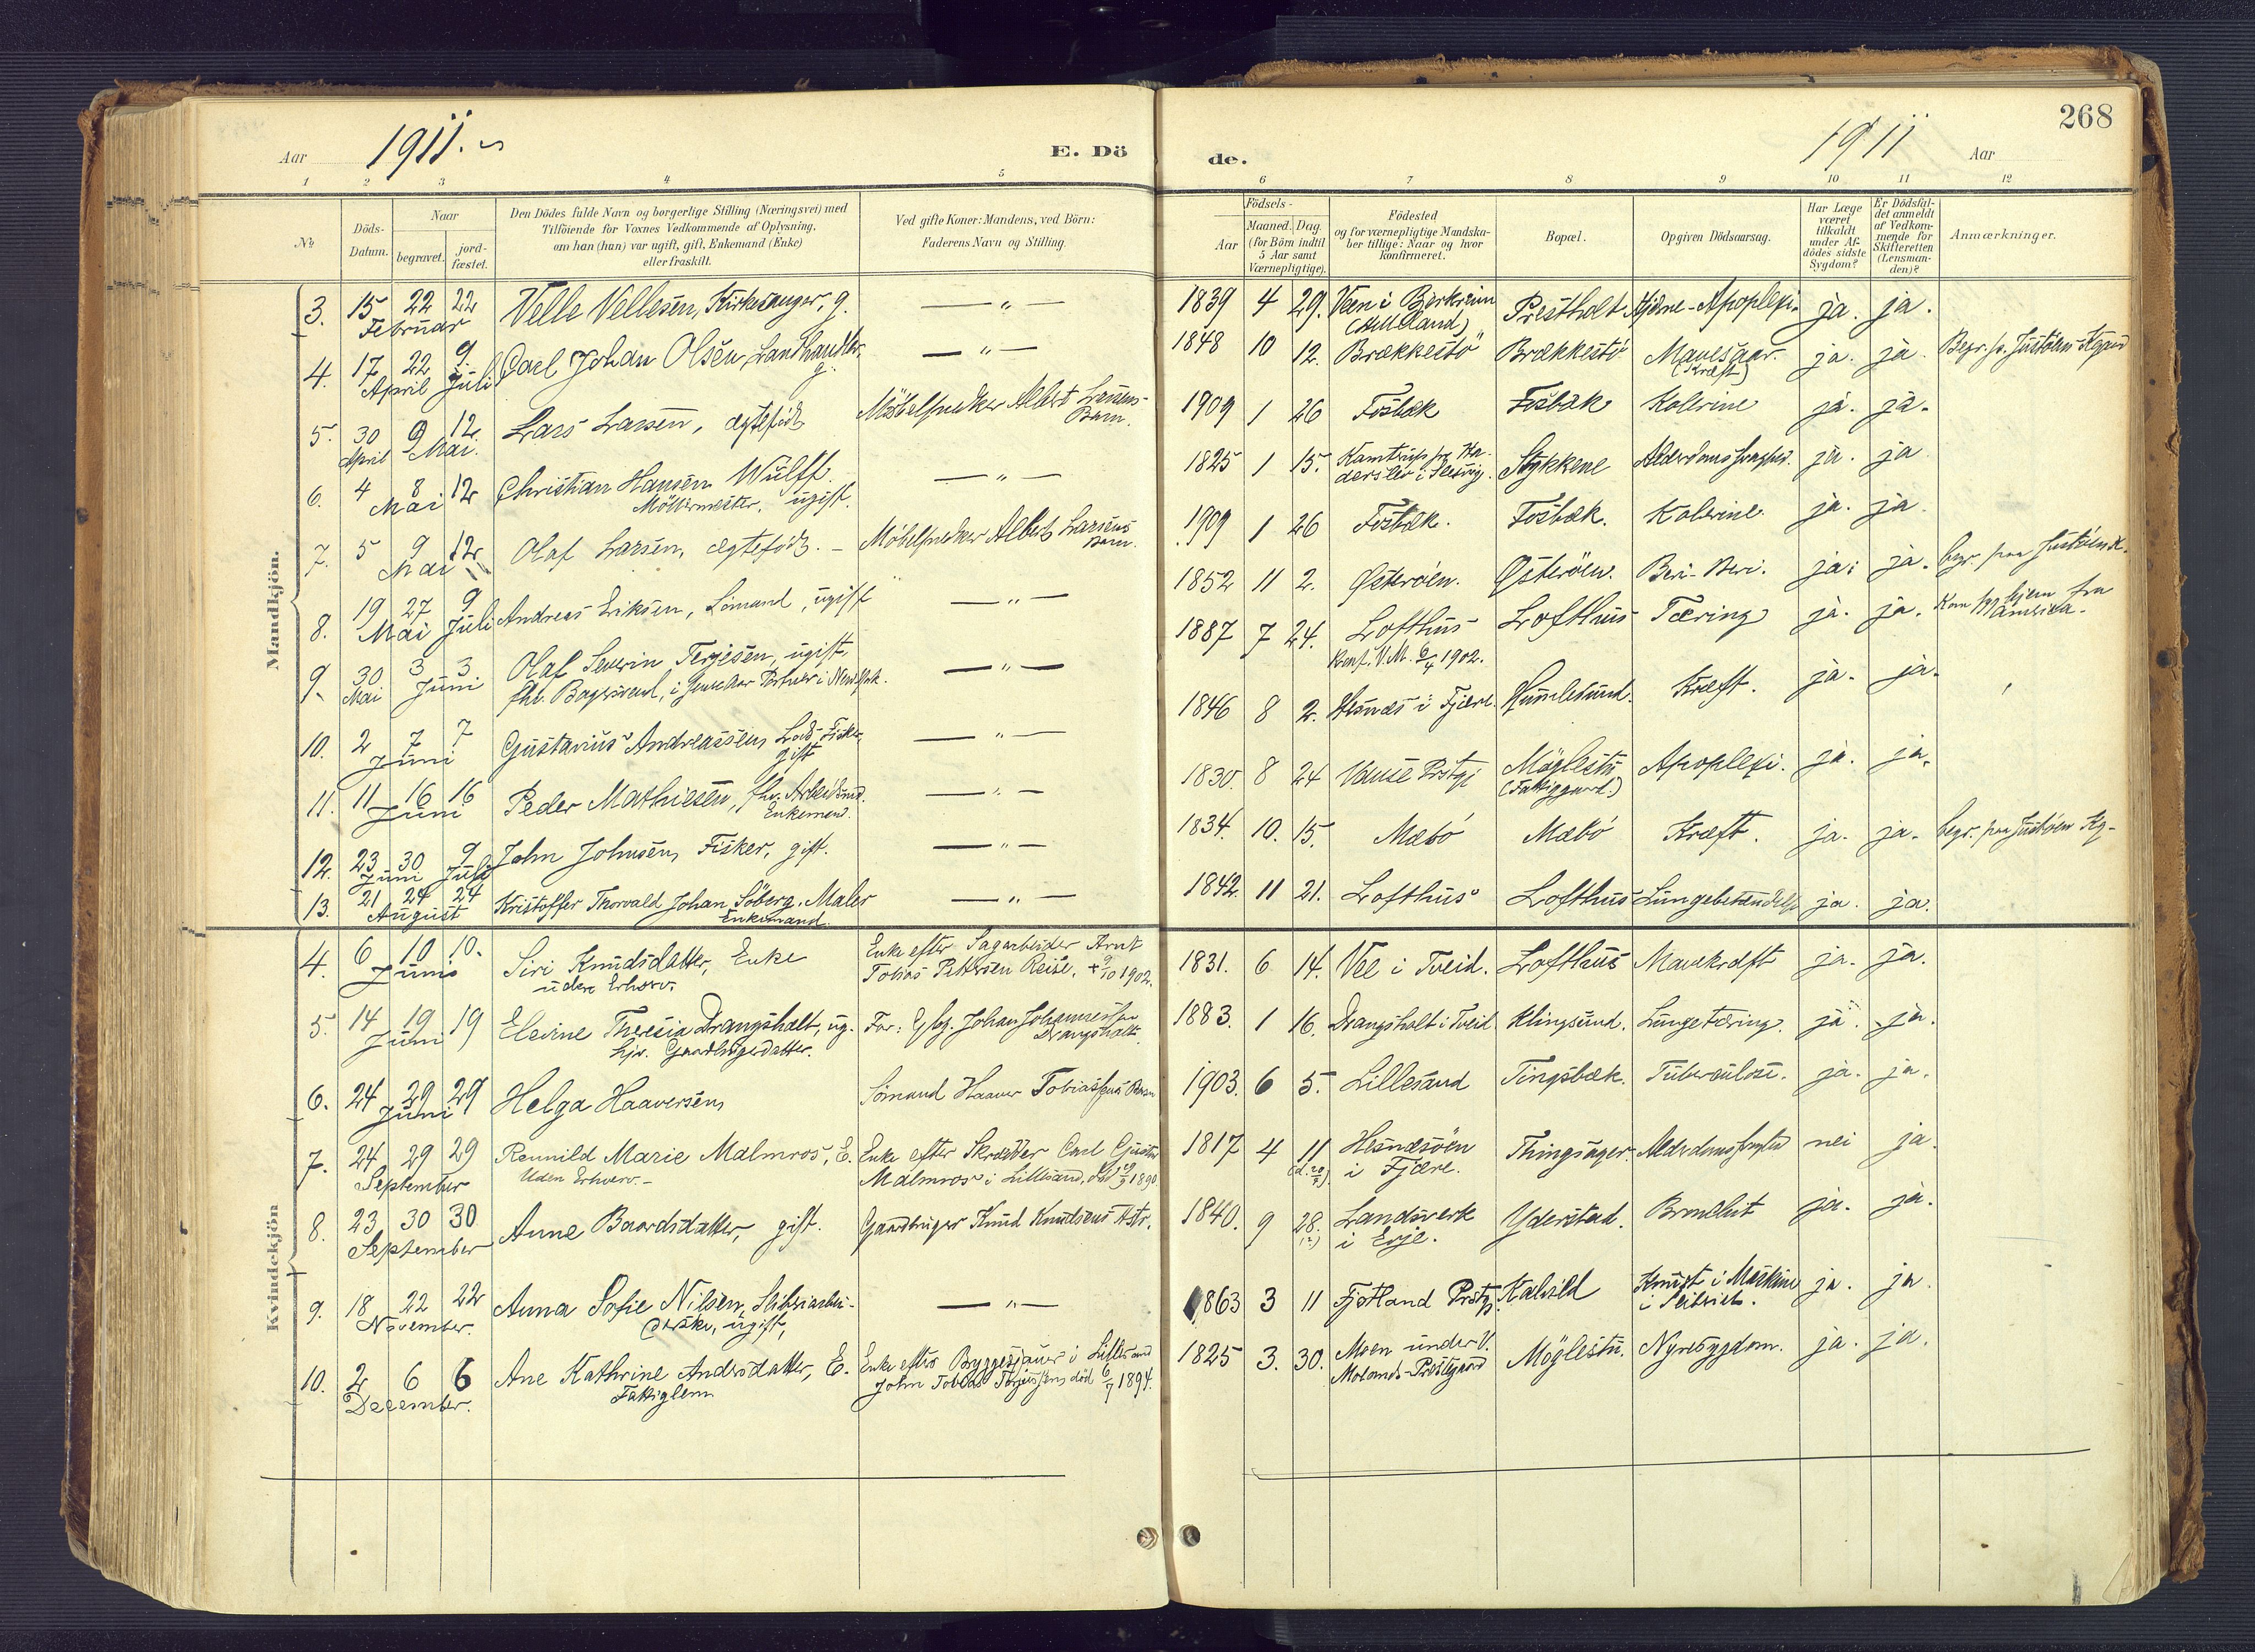 Aar 1911.
E. Dö
1 2 3 4 5
Nr
Döds-
Datum.
Naar
begravet.
jord-
fæstet.
Den Dödes fulde Navn og borgerlige Stilling (Næringsvei) med
Tilföiende for Voxnes Vedkommende af Oplysning,
om han (hun) var ugift, gift, Enkemand (Enke)
eller fraskilt.
Ved gifte Koner: Mandens, ved Börn:
Faderens Navn og Stilling.
Mandkjön.
3. 15 22 22 Velle Vellesen, Kirkesanger, g. — " —
Februar
4. 17 22 9 Carl Johan Olsen, Landhandler, — " —
April Juli g.
5. 30 9 12. Lars Larsen, ægtefödt Möbelsnedker Albert Larsens
April Mai. Barn.
6. 4 8 12 Christian Hansen Wulff. — " —
Mai Möllermester, ugift.
7. 5 9 12 Olaf Larsen, ægtefödt. – Möbelsnedker Albert Larsens
Mai Barn.
8. 19 27 9 Andreas Eriksen, Sömand, ugift — " —
Mai Juli
9. 30 3 3 Olaf Severin Terjesen, ugift, — " —
Mai Juni fhv. Bagersvend, i New York.
10. 2 7 7 Gustavius Andreassen, Lods-Fisker, — " —
Juni gift
11. 11 16 16 Peder Mathiesen, fhv. Arbeidsmd. — " —
Juni Enkemand.
12. 23 30 9 John Johnsen, Fisker, gift. — " —
Juni Juli
13. 21 24 24 Kristoffer Thorvald Johan Söberg, Maler — " —
August Enkemand.
Kvindekjön
4. 6 10 10. Siri Knudsdatter, Enke Enke efter Sagarbeider Arnt
Juni uden Erhverv. Tobias Pettersen Reise, + 9/10 1902.
5. 14 19 19 Elevine Theresia Drangsholt, ug. Far: Johan
Juni hjv. Gaardbrugerdatter. Drangsholt.
6. 24 29 29 Helga Haaversen, Sömand Haaver Tobiassens Barn
Juni
7. 24 29 29 Marie Malmros, E. Enke efter Skrædder Carl Gustav
September Uden Erhverv. – Malmros i Lillesand, 1890
8. 23 30 30 Anne Baardsdatter, gift. Gaardbruger Knud Knudsens Hstr.
September
9. 18 22 22 Anna Sofie Nilsen, Sliberiarbei- — " —
November. derske, ugift,
10. 2 6 6 Ane Kathrine Andersdatter, E. Enke efter Bryggesjauer i Lillesand
December. Fattiglem John Tobias död 6/7 1894.
de.
1911 Aar
268
6 7 8 9 10 11 12
Födsels-
Aar
Maaned. Dag.
(for Börn indtil
5 Aar samt
Værnepligtige).
Födested
og for værnepligtige Mandska-
ber tillige: Naar og hvor
konfirmeret.
Bopæl.
Opgiven Dödsaarsag.
Har Læge
været
tilkaldt
under Af-
dödes sidste
Sygdom?
Er Dödsfal-
det anmeldt
af Vedkom-
mende for
Skifteretten
(Lensman-
den)?
Anmærkninger.
1839 4 29. Veen i Bjerkreim Prestholt Hjerne-Apoplexi. ja. ja.
1848 10 12. Brækkestö Brækkestö Mavesaar. ja. ja. Begr. p. Justöens Kgaard
(Kræft)
1909 1 26 Fosbæk Fosbæk Kolerine ja. ja.
1825 1 15. Kamtrup pr Ha- Stykkene Alderdomssvaghed. ja. ja
derslev i Slesvig.
1909 1 26 Fosbæk. Fosbæk. Kolerine ja. ja.
1852 11 2. Österöen. Österöen. Beri-Beri. ja. ja. begr. paa Justöens K.
1887 7 24. Lofthus Lofthus Tæring ja. ja. Kom syg hjem fra
Konf. V.M. 6/4 1902. Amerika.
1846 8 2. Hesnæs i Fjære. Humlesund. Kræft. ja. ja.
1830. 8 24 Vanse Prstgj Möglestu Apoplexi. ja. ja.
(Fattiggaard.)
1834. 10. 15. Mæbö Mæbö Kræft. ja. ja. begr. paa Justöens Kg.
1842. 11 21. Lofthus Lofthus Lungebetændelse ja. ja.
1831. 6 14. Vee i Tveid. Lofthus Mavekræft ja. ja.
1883. 1 16. Drangsholt i Tveid Klingsund. Lungetæring. ja. ja.
1903. 6 5. Lillesand Tingsbæk. Tuberculose. ja. ja.
1817 4 11 Hesnæsöen Thingsager. Alderdomssvaghed nei ja.
i Fjære.
1840. 9 28. Landsverk Yderstad. Bronchit ja. ja.
i Evje.
1863 3 11 Fjotland Prstgj. Kalvild Knust i Maskine ja. ja.
i Sliberiet.
1825 3. 30. Moen under V. Möglestu. Nyresygdom. ja. ja.
Molands-Prestegaard